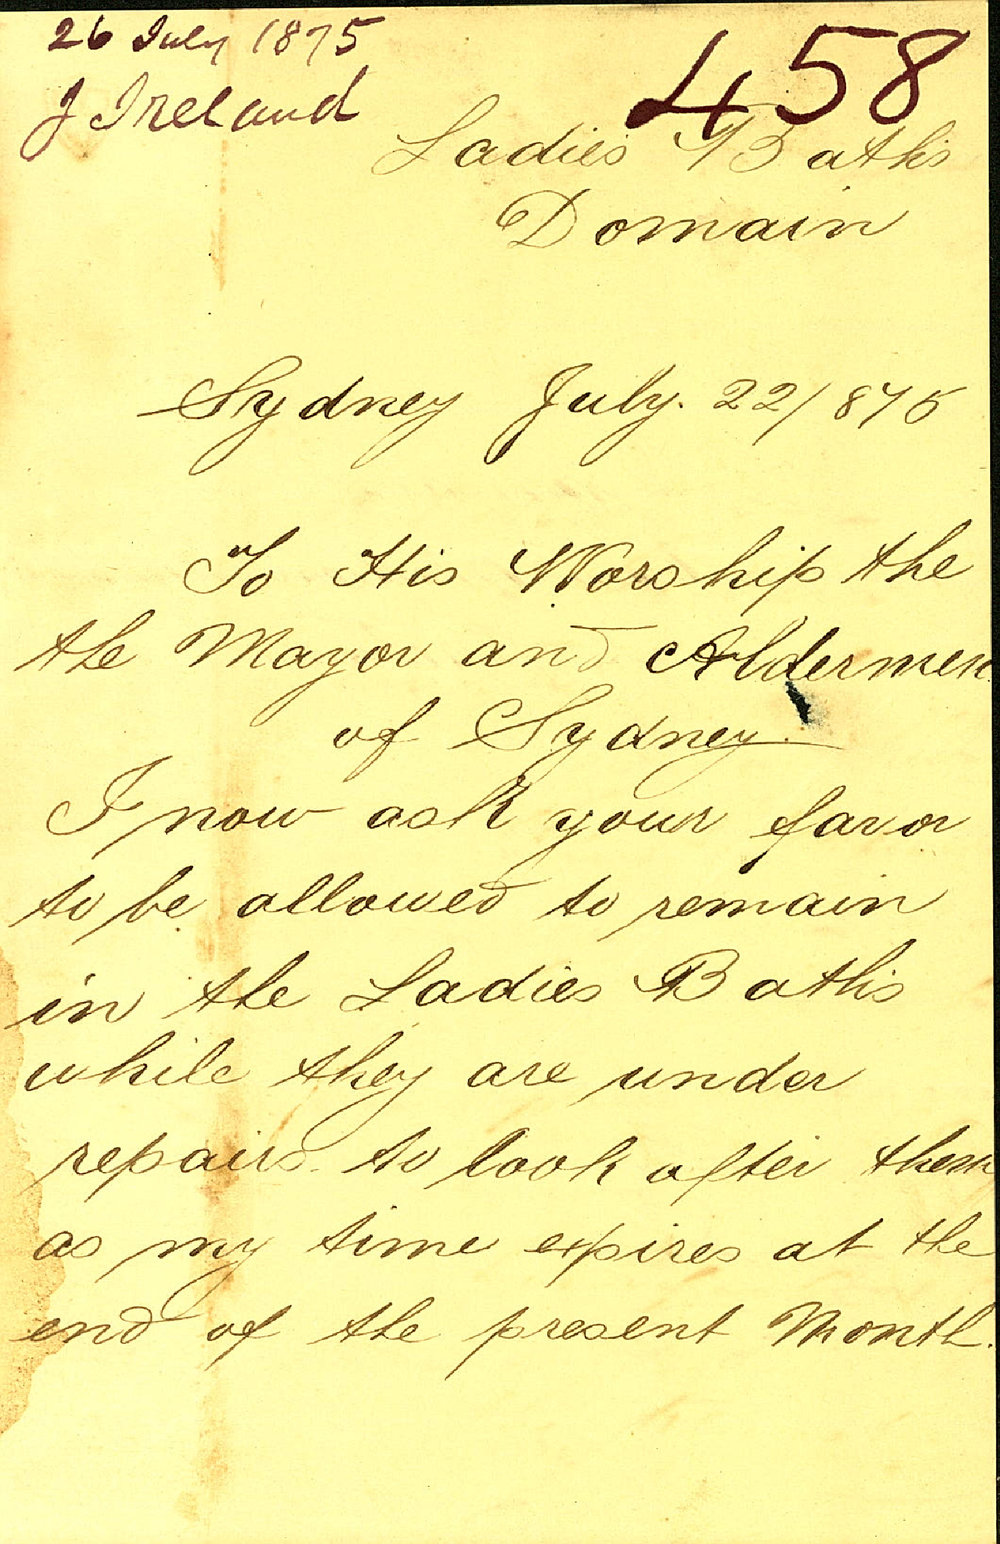 26 July 1875
J Ireland
458
Ladies Baths
Domain
Sydney July. 22/875
To His Worship the
the Mayor and Aldermen
of Sydney.
I now ask your favor
to be allowed to remain
in the Ladies Baths
while they are under
repairs. to look after them
as my time expires at the
end of the present Month.